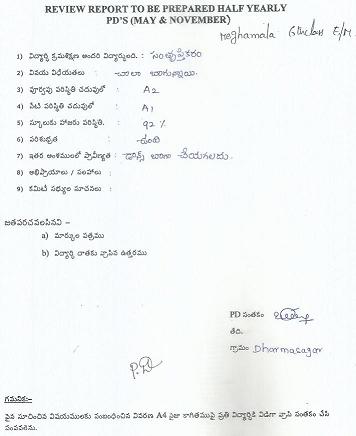 REVIEW REPORT TO BE PREPARED HALF YEARLY
PD'S (MAY & NOVEMBER)
Meghamala 6th class E/M.
1) విద్యార్థి క్రమశిక్షణ అందరి విద్యార్థులది. : సంతృప్తికరం
2) వినయ విధేయతలు : చాలా బాగున్నాయి.
3) పూర్వపు పరిస్థితి చదువులో : A2
4) నేటి పరిస్థితి చదువులో : A1
5) స్కూలుకు హాజరు పరిస్థితి. : 92%
6) పరిశుభ్రత : ఉంది
7) ఇతర అంశములలో ప్రావీణ్యత : డాన్స్ బాగా చేయగలదు.
8) అభిప్రాయాలు / సలహాలు :
9) కమిటీ సభ్యుల సూచనలు :
జతపరచవలసినవి –
a) మార్కుల పత్రము
b) విద్యార్థి దాతకు వ్రాసిన ఉత్తరము
PD సంతకం
తేది.
గ్రామం Dharmasagar
P.D
గమనిక:–
పైన సూచించిన విషయములకు సంబంధించిన వివరణ A4 సైజు కాగితముపై ప్రతి విద్యార్థికి విడిగా వ్రాసి సంతకం చేసి
పంపవలెను.